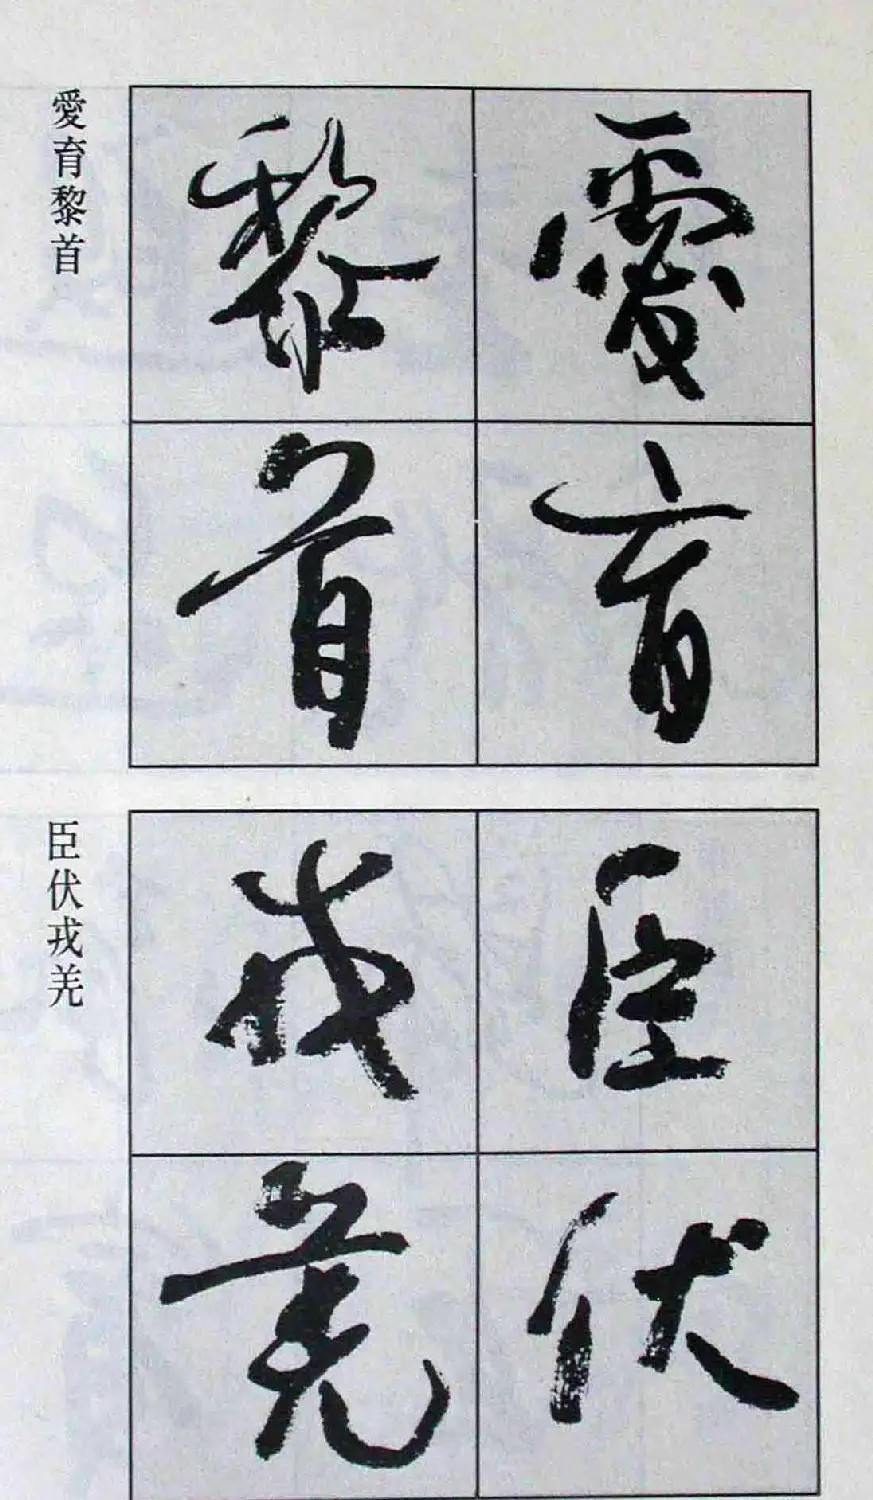 愛育
黎首
愛育黎首
臣伏
戎羌
臣伏戎羌